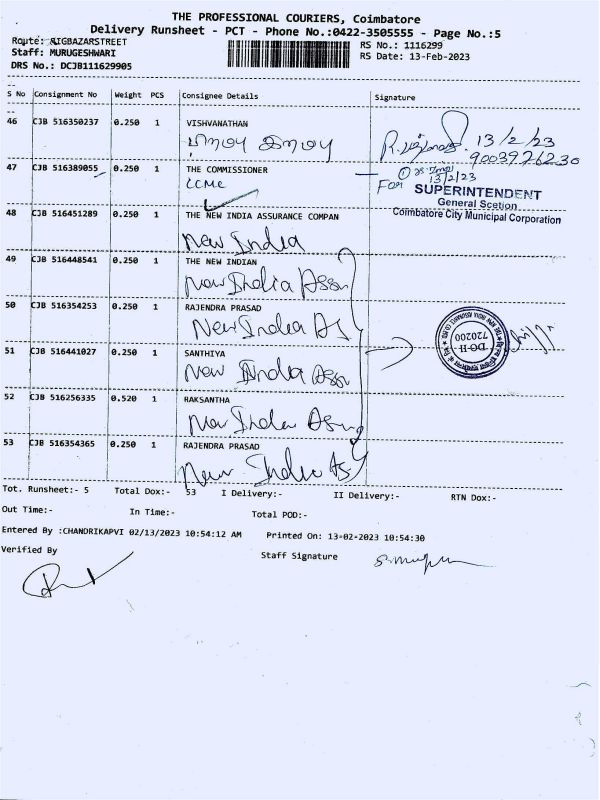 THE PROFESSIONAL COURIERS, Coimbatore
Delivery Runsheet - PCT - Phone No.:0422-3505555 - Page No.:5
RS No.: 1116299
Staff: MURUGESHWARI
RS Date: 13-Feb-2023
DRS No.: DCJB111629905
S No Consignment No Weight PCS Consignee Details Signature
46 CJB 516350237 0.250 1 VISHVANATHAN
13/2/23
9003976230
47 CJB 516389055 0.250 1 THE COMMISSIONER
13/2/23
For SUPERINTENDENT
General Scetion
Coimbatore City Municipal Corporation
48 CJB 516451289 0.250 1 THE NEW INDIA ASSURANCE COMPAN
New India
49 CJB 516448541 0.250 1 THE NEW INDIAN
New India Assn
50 CJB 516354253 0.250 1 RAJENDRA PRASAD
New India As
DO-II
720200
51 CJB 516441027 0.250 1 SANTHIYA
New India Assn
52 CJB 516256335 0.520 1 RAKSANTHA
New India
53 CJB 516354365 0.250 1 RAJENDRA PRASAD
New India As
Tot. Runsheet:- 5 Total Dox:- 53 I Delivery:- II Delivery:- RTN Dox:-
Out Time:- In Time:- Total POD:-
Entered By :CHANDRIKAPVI 02/13/2023 10:54:12 AM Printed On: 13-02-2023 10:54:30
Verified By Staff Signature